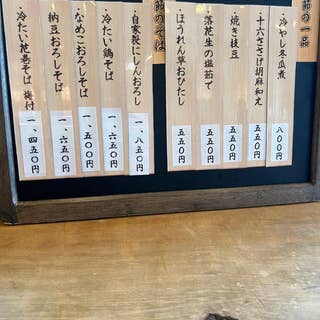 節の一品
・冷やし冬瓜煮
八〇〇円
・十六ささげ胡麻和え
五五〇円
・焼き枝豆
五五〇円
・落花生の塩茹で
五五〇円
・ほうれん草おひたし
五五〇円
節のそば
・自家製にしんおろし
一、八五〇円
・冷たい鶏そば
一、六五〇円
・なめこおろしそば
一、五〇〇円
納豆おろしそば
一、六五〇円
・冷たい花巻そば 海苔付
一、四五〇円